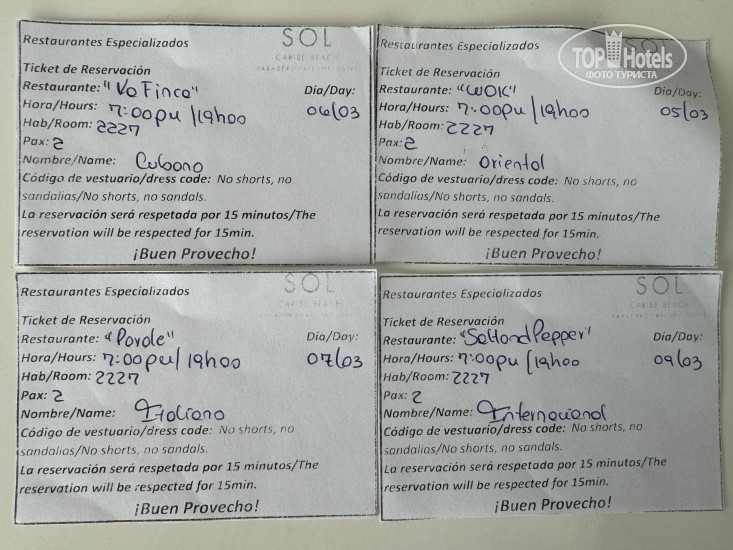 Restaurantes Especializados
SOL
CARIBE BEACH
Ticket de Reservación
Restaurante: "La Finca"
Día/Day:
Hora/Hours: 7:00pm/19h00
06/03
Hab/Room: 2227
Pax: 2
Nombre/Name: Cubano
Código de vestuario/dress code: No shorts, no
sandalias/No shorts, no sandals.
La reservación será respetada por 15 minutos/The
reservation will be respected for 15min.
¡Buen Provecho!
Restaurantes Especializados
SOL
TOP Hotels
ФОТО ТУРИСТА
Ticket de Reservación
Restaurante: "WOK"
Día/Day:
Hora/Hours: 7:00pm/19h00
05/03
Hab/Room: 2227
Pax: 2
Nombre/Name: Oriental
Código de vestuario/dress code: No shorts, no
sandalias/No shorts, no sandals.
La reservación será respetada por 15 minutos/The
reservation will be respected for 15min.
¡Buen Provecho!
Restaurantes Especializados
SOL
CARIBE BEACH
Ticket de Reservación
Restaurante:
Día/Day:
Hora/Hours: 7:00pm/19h00
07/03
Hab/Room: 2227
Pax: 2
Nombre/Name: Italiano
Código de vestuario/dress code: No shorts, no
sandalias/No shorts, no sandals.
La reservación será respetada por 15 minutos/The
reservation will be respected for 15min.
¡Buen Provecho!
Restaurantes Especializados
SOL
CARIBE BEACH
Ticket de Reservación
Restaurante: "SaltandPepper"
Día/Day:
Hora/Hours: 7:00pm/19h00
09/03
Hab/Room: 2227
Pax: 2
Nombre/Name: Internacional
Código de vestuario/dress code: No shorts, no
sandalias/No shorts, no sandals.
La reservación será respetada por 15 minutos/The
reservation will be respected for 15min.
¡Buen Provecho!